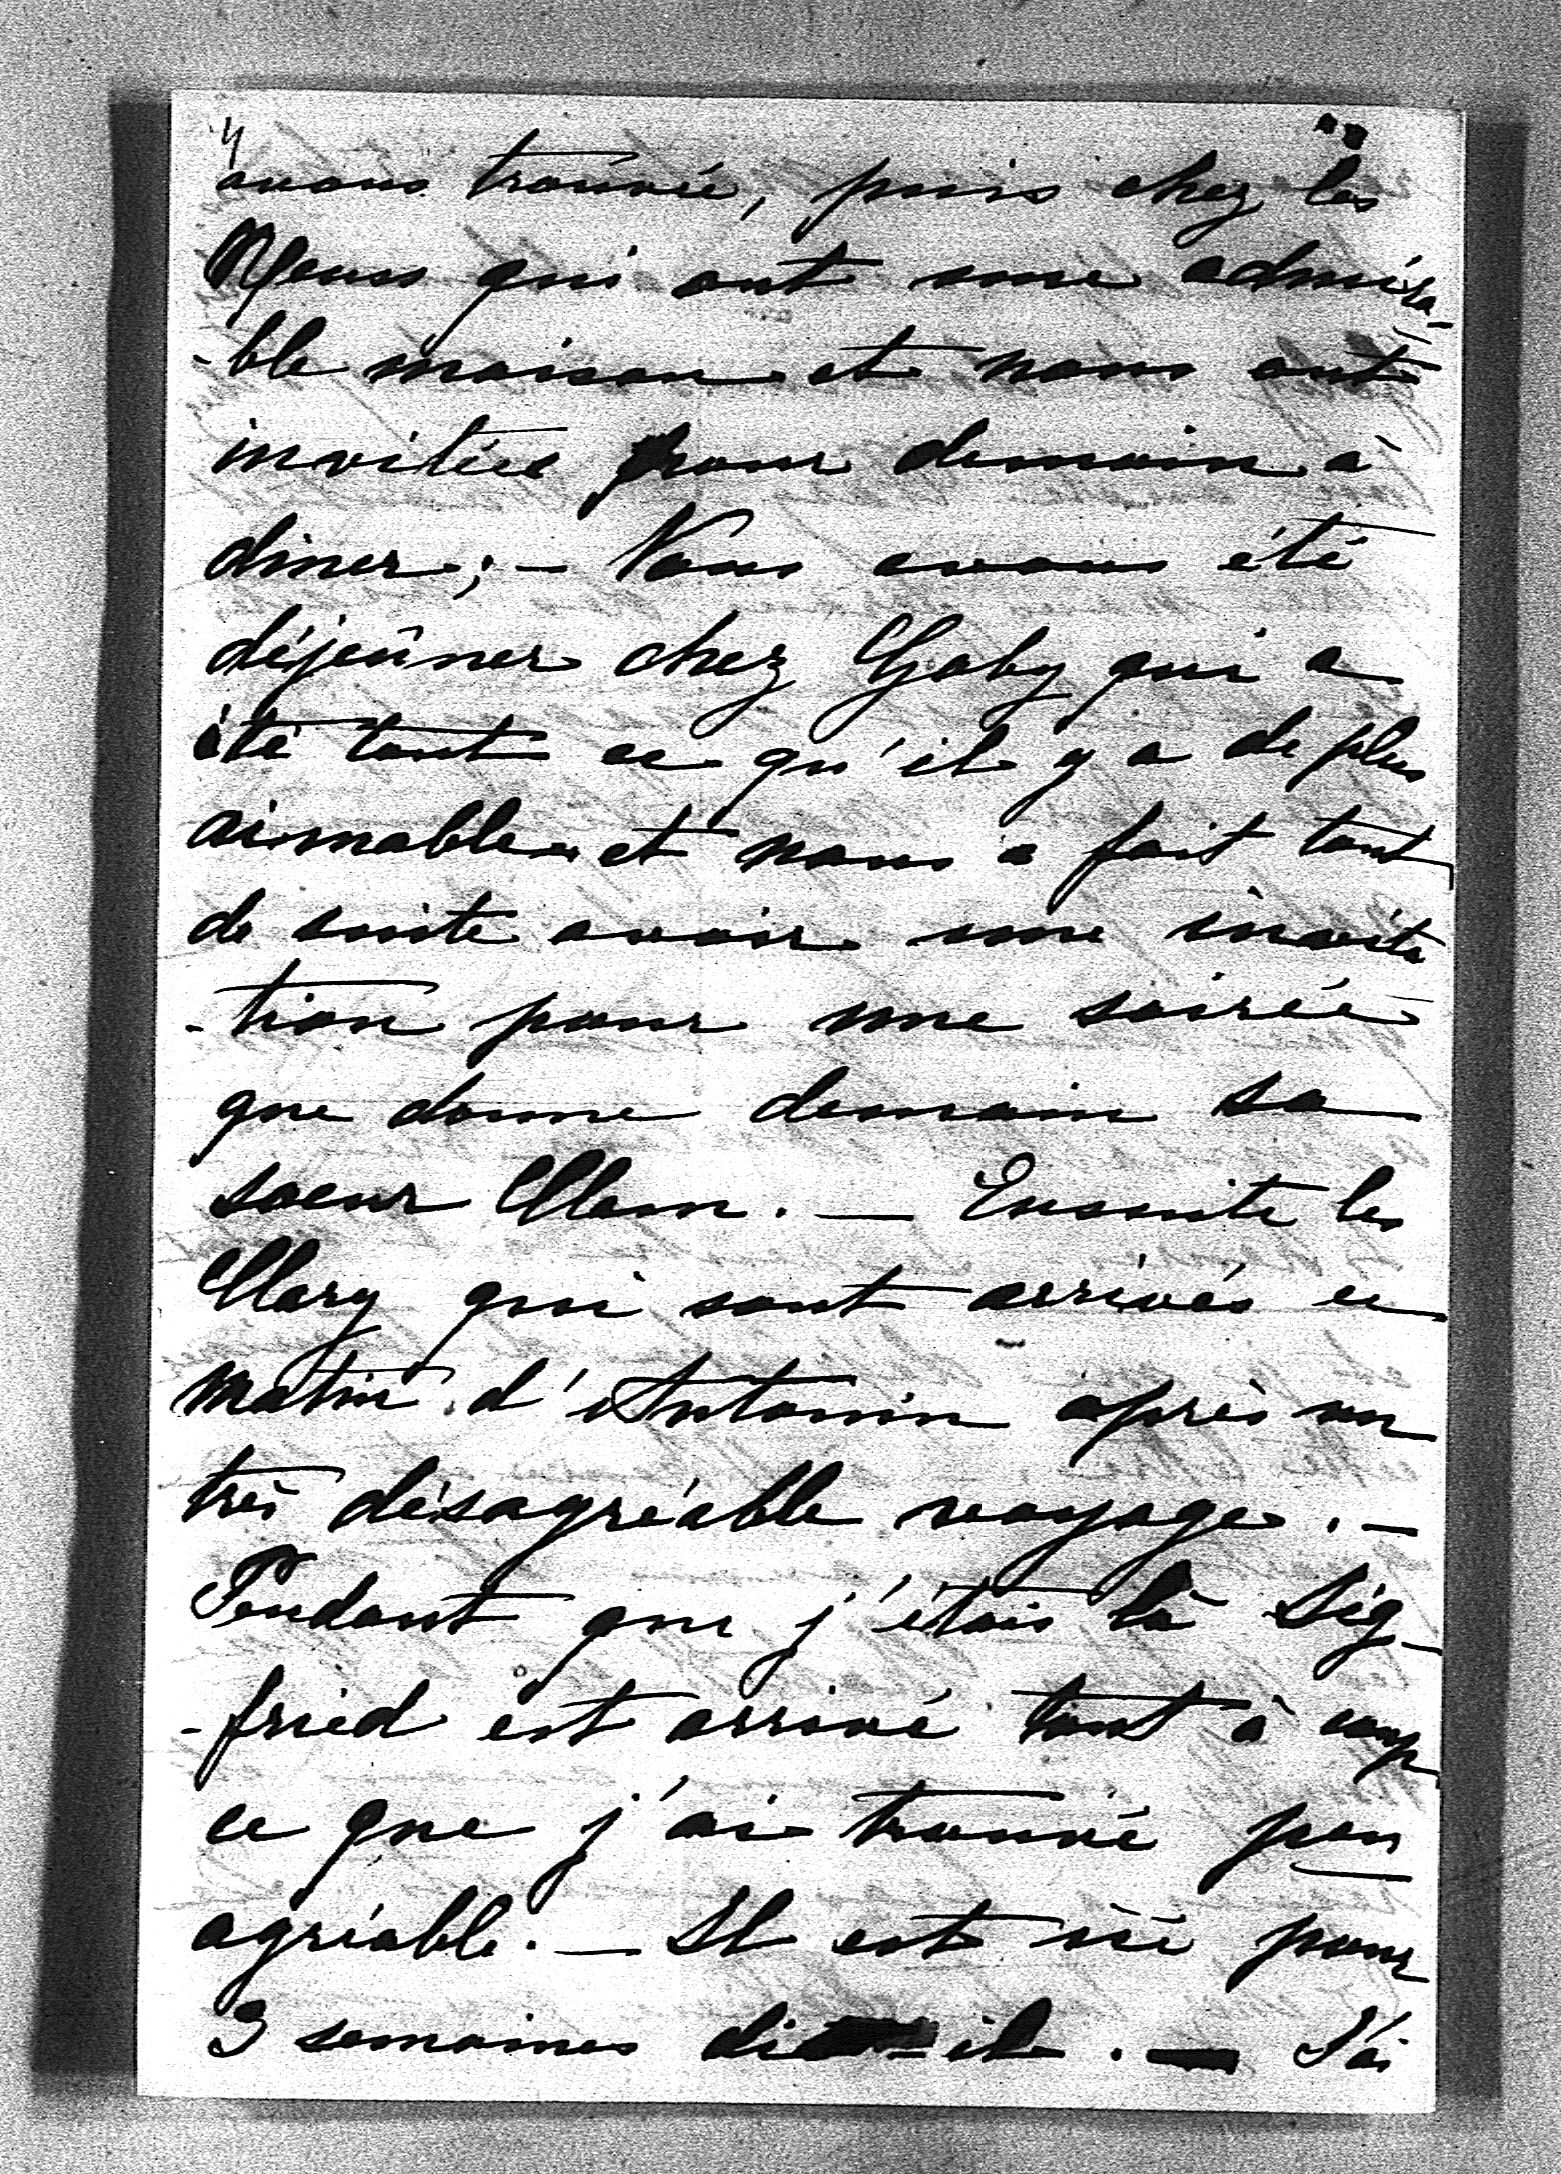 4
avons trouvée, puis chez les
qui ont une admira-
-ble maison et nous ont
invitées pour demain à
diner; – Nous avons été
déjeûner chez Gaby qui a
été tout ce qu'il y a de plus
aimable et nous a fait tout
de suite avoir une invita
-tion pour une soirée
que donne demain sa
soeur Clam. — Ensuite les
Clary qui sont arrivés ce
matin d'Antonin après un
très désagréable voyage. –
Pendant que j'étais là Sig-
-fried est arrivé tout à coup
ce que j'ai trouvé peu
agréable. — Il est ici pour
3 semaines dit-il. — J'ai